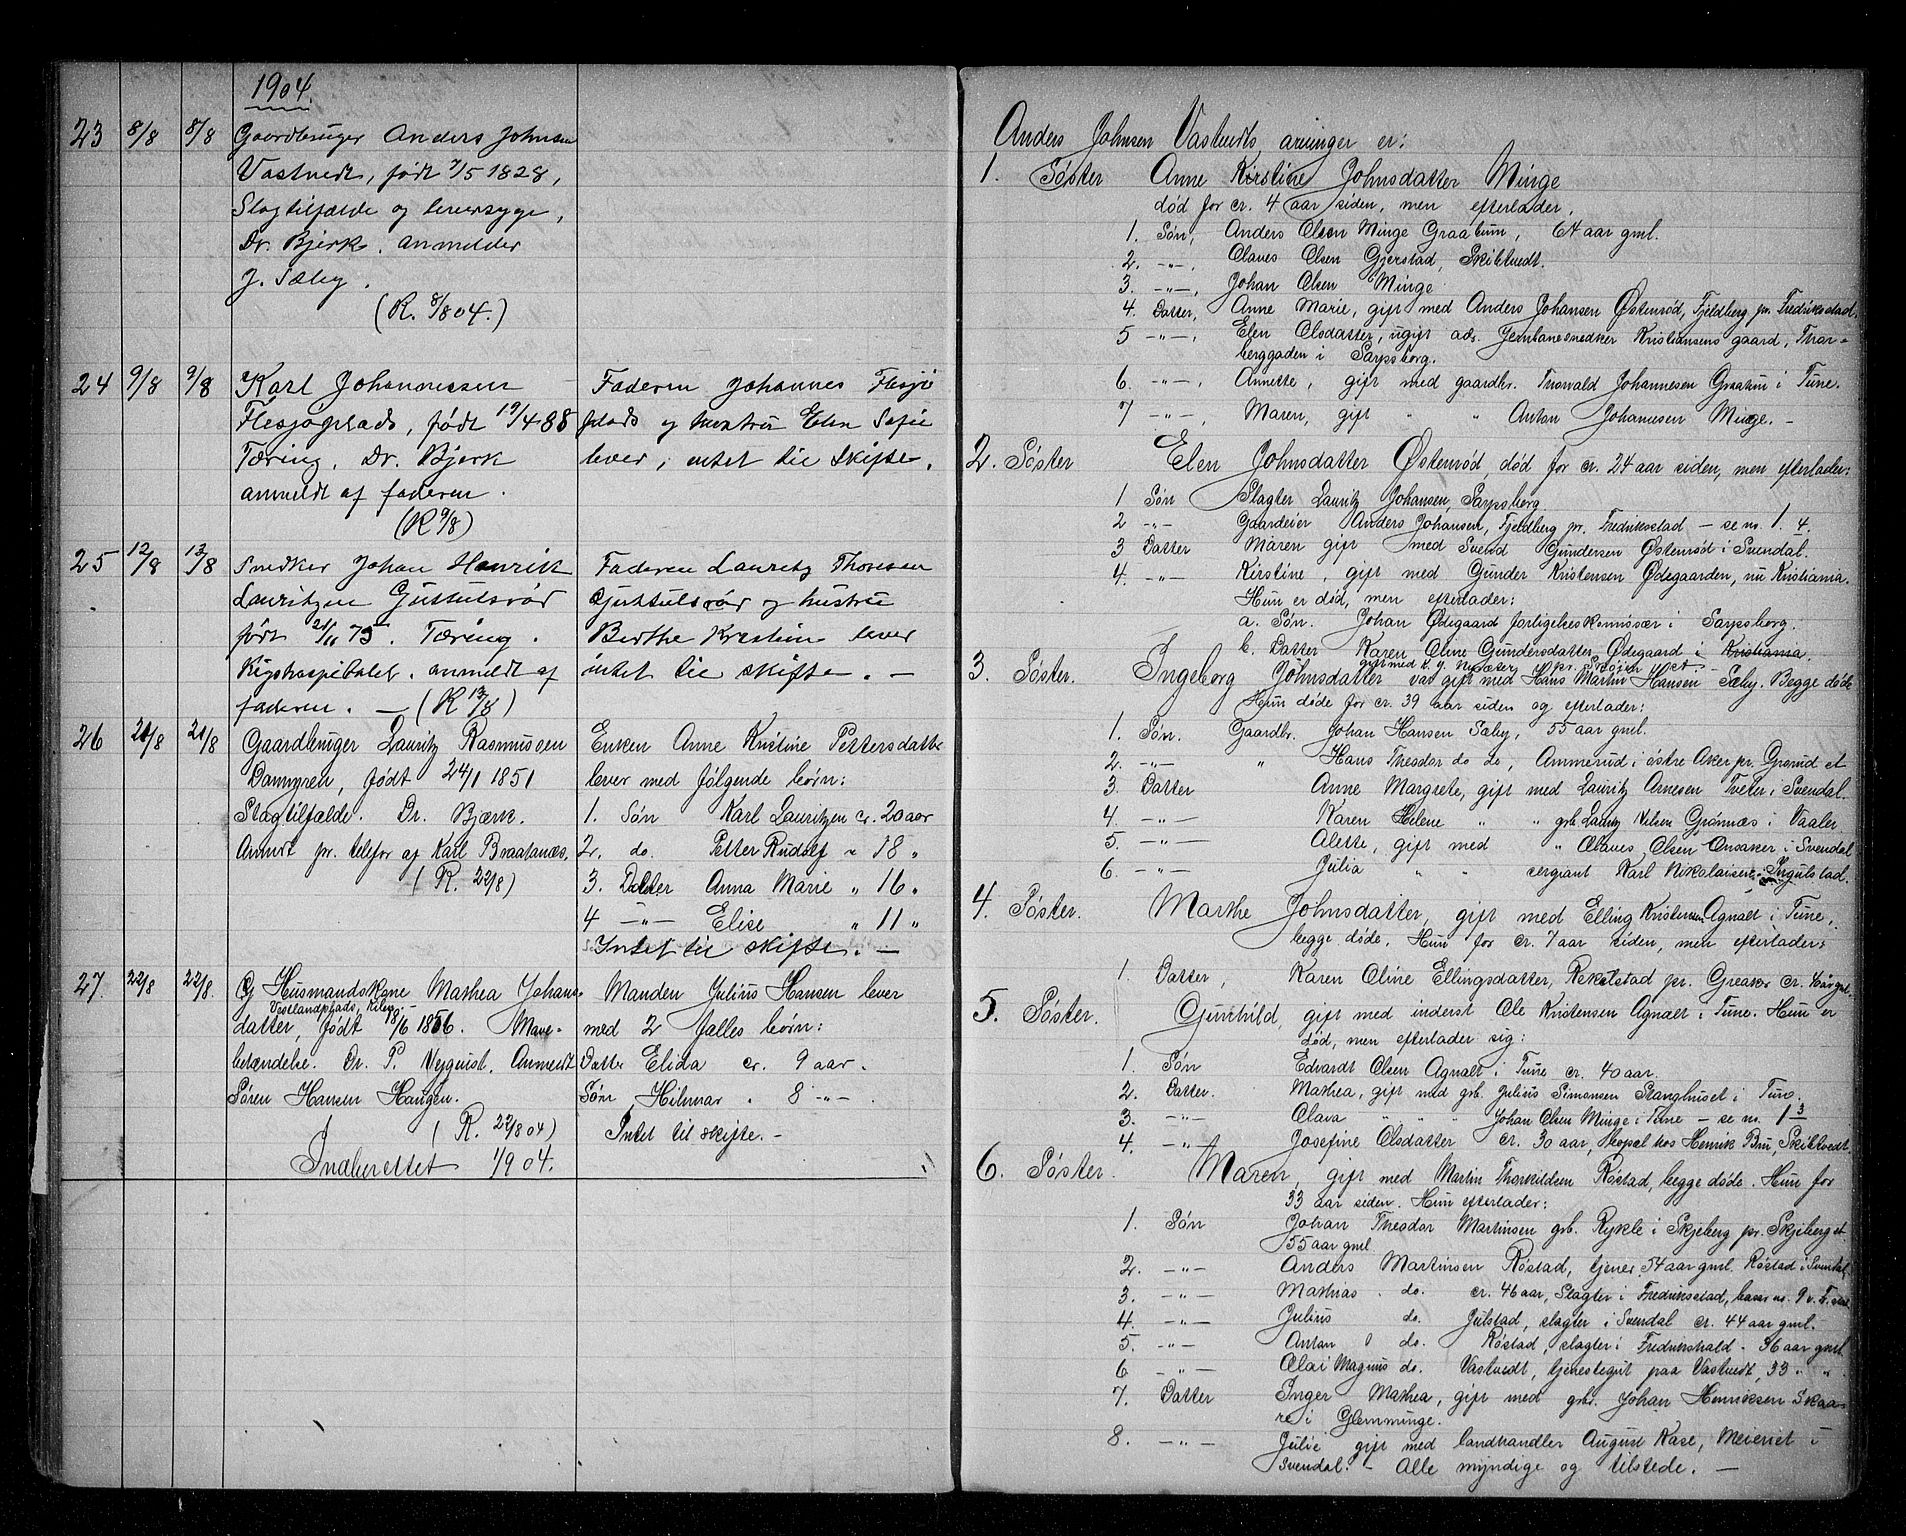 1904.
23 8/8 8/8 Gaardbruger Anders Johnsen
Vastvedt, født 7/5 1828,
Slagtilfælde og leversyge,
Dr. Bjerk. anmelder
J. Sæby.
(R. 8/8 04.)
24 9/8 9/8 Karl Johannessen
Flesjøplads, født 19/4 88
Tæring. Dr. Bjerk
anmeldt af faderen.
(R 9/8)
Faderen Johannes Flesjø
plads og hustru Elen Sofie
lever, intet til skifte.
25 12/8 13/8 Snedker Johan Henrik
Lauritzen Guttulsrød
født 21/11 75. Tæring.
Rigshospitalet. anmeldt af
faderen. — (R 13/8)
Faderen Lauritz Thoresen
Guttulsrød og hustru
Berthe Kristine lever
intet til skifte. —
26 21/8 21/8 Gaardbruger Lauritz Rasmussen
Dammyren, født 24/1 1851
Slagtilfælde. Dr. Bjærk.
Anmdt pr. telefon af Karl Braatanæs.
(R. 22/8)
Enken Anne Kristine Pettersdatter
lever med følgende børn:
1. Søn Karl Lauritzen cr. 20 aar
2. do. Petter Rudolf " 18 "
3. Datter Anna Marie " 16 "
4 —"— Elise " 11 "
Intet til skifte. —
27. 22/8 22/8. Husmandskone Mathea Johans-
Vestlandplads, Kileg.
datter, født 18/6 1856. Mave-
betændelse. Dr. P. Nyquist. Anmeldt
Søren Hansen Haugen.
(R. 22/8 04)
Manden Julius Hansen lever
med 2 fælles børn:
Datter Elida cr. 9 aar.
Søn Hilmar " 8 —"—
Intet til skifte. —
Indberettet 1/9 04.
Anders Johnsen Vastvedts arvinger er:
1. Søster Anne Kirstine Johnsdatter Minge
død for cr. 4 aar siden, men efterlader,
1. Søn, Anders Olsen Minge Graatun, 64 aar gml.
2. —"—, Olaves Olsen Gjerstad, Skibtvedt.
3. —"—, Johan Olsen Minge
4. Datter, Anne Marie, gift med Anders Johansen Østenrød, Fjeldberg pr. Fredriksstad.
5 —"—, Elen Olsdatter, ugift ads. Jernbanesnedker Kristiansens gaard, Thor-
berggaden i Sarpsborg.
6. —"—, Annette, gift med gaardbr. Thorvald Johannesen Graatun i Tune.
7 —"—, Maren, gift " " Anton Johannesen Minge. —
2. Søster Elen Johnsdatter Østenrød, død for cr. 24 aar siden, men efterlader:
1 Søn Slagter Lauritz Johansen, Sarpsborg
2 —"— Gaardeier Anders Johansen, Fjeldberg pr. Fredriksstad — se no. 1. 4.
3 Datter Maren gift med Svend Gundersen Østenrød i Svendal.
4. —"— Kirstine, gift med Gunder Kristensen Ødegaarden, nu Kristiania.
Hun er død, men efterlader:
a. Søn. Johan Ødegaard forligelseskommissær i Sarpsborg.
b. Datter Karen Oline Gundersdatter Ødegaard i Kristiania.
3. Søster. Ingeborg Johnsdatter var gift med Hans Martin Hansen Sæby. Begge døde
Hun døde for cr. 39 aar siden og efterlader:
1. Søn. Gaardbr. Johan Hansen Sæby, 55 aar gml.
2. —"— " Hans Theodor do do, Ammerud i østre Aker pr. Grorud st
3. Datter Anne Margrete, gift med Lauritz Arnesen Tveter i Svendal.
4. —"— Karen Helene " " grb. Lauritz Nilsen Grønnæs i Vaaler
5. —"— Alette, gift med " Olaves Olsen Onsaker i Svendal
6. —"— Julia " " sergiant Karl Nikolaisen Ingulstad.
4. Søster. Marthe Johnsdatter, gift med Elling Kristensen Agnalt i Tune,
begge døde. Hun for cr. 7 aar siden, men efterlader:
1. Datter, Karen Oline Ellingsdatter, Rekelstad pr. Greaker
5. Søster. Gunhild, gift med inderst Ole Kristensen Agnalt i Tune. Hun er
død, men efterlader sig:
1. Søn Edvardt Olsen Agnalt i Tune cr. 40 aar.
2. Datter. Mathea, gift med grb. Julius Simonsen Stanghuset i Tune.
3. —"— Olava " " Johan Olsen Minge i Tune — se no. 1 3
4. —"— Josefine Olsdatter cr. 30 aar, hos Henrik Bru, Skibtvedt.
6. Søster. Maren, gift med Martin Thorkildsen Røstad, begge døde. Hun for
33 aar siden. Hun efterlader:
1. Søn Johan Theodor Martinsen grb. Rykle i Skjeberg pr. Skjeberg st
55 aar gml
2. —"— Anders Martinsen Røstad, tjener 54 aar gml. Røstad i Svendal
3. —"— Mathias do. cr. 46 aar, Slagter i Fredriksstad,
4. —"— Julius do. Julstad, slagter i Svendal cr. 44 aar gml.
5. —"— Anton do. Røstad, slagter i Fredrikshald. 36 aar gml
6 —"— Olai Magnus do. Vastvedt, tjenestegut paa Vastvedt, 33 " "
7. Datter Inger Mathea, gift med grbr. Johan Henriksen Skaa-
re i Glemminge.
8. —"— Julie gift med landhandler August Kase, Meieriet i
Svendal. — Alle myndige og tilstede. —